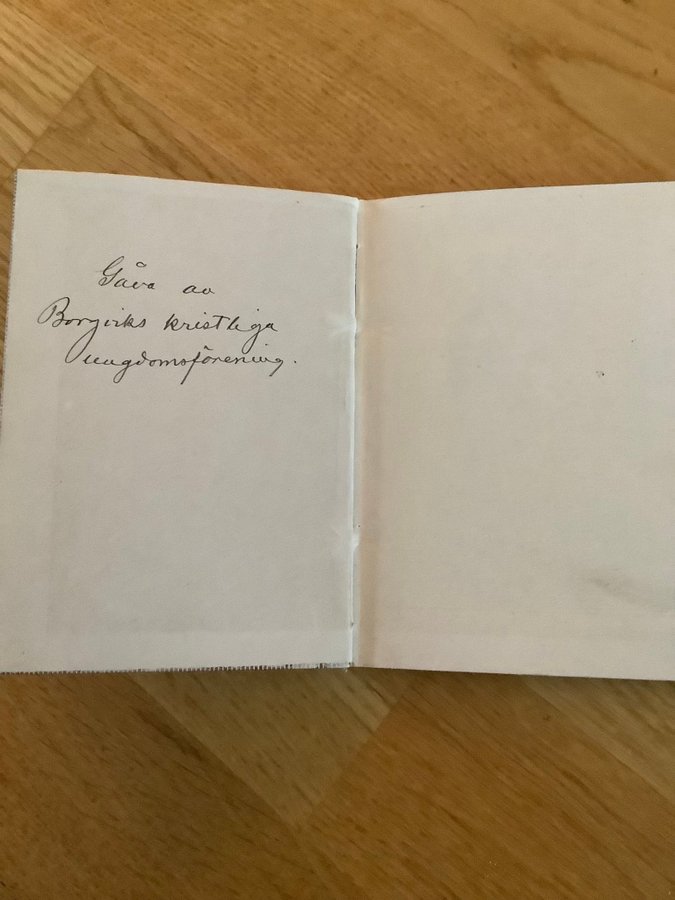 Gåva av
Borgviks kristliga
ungdomsförening.